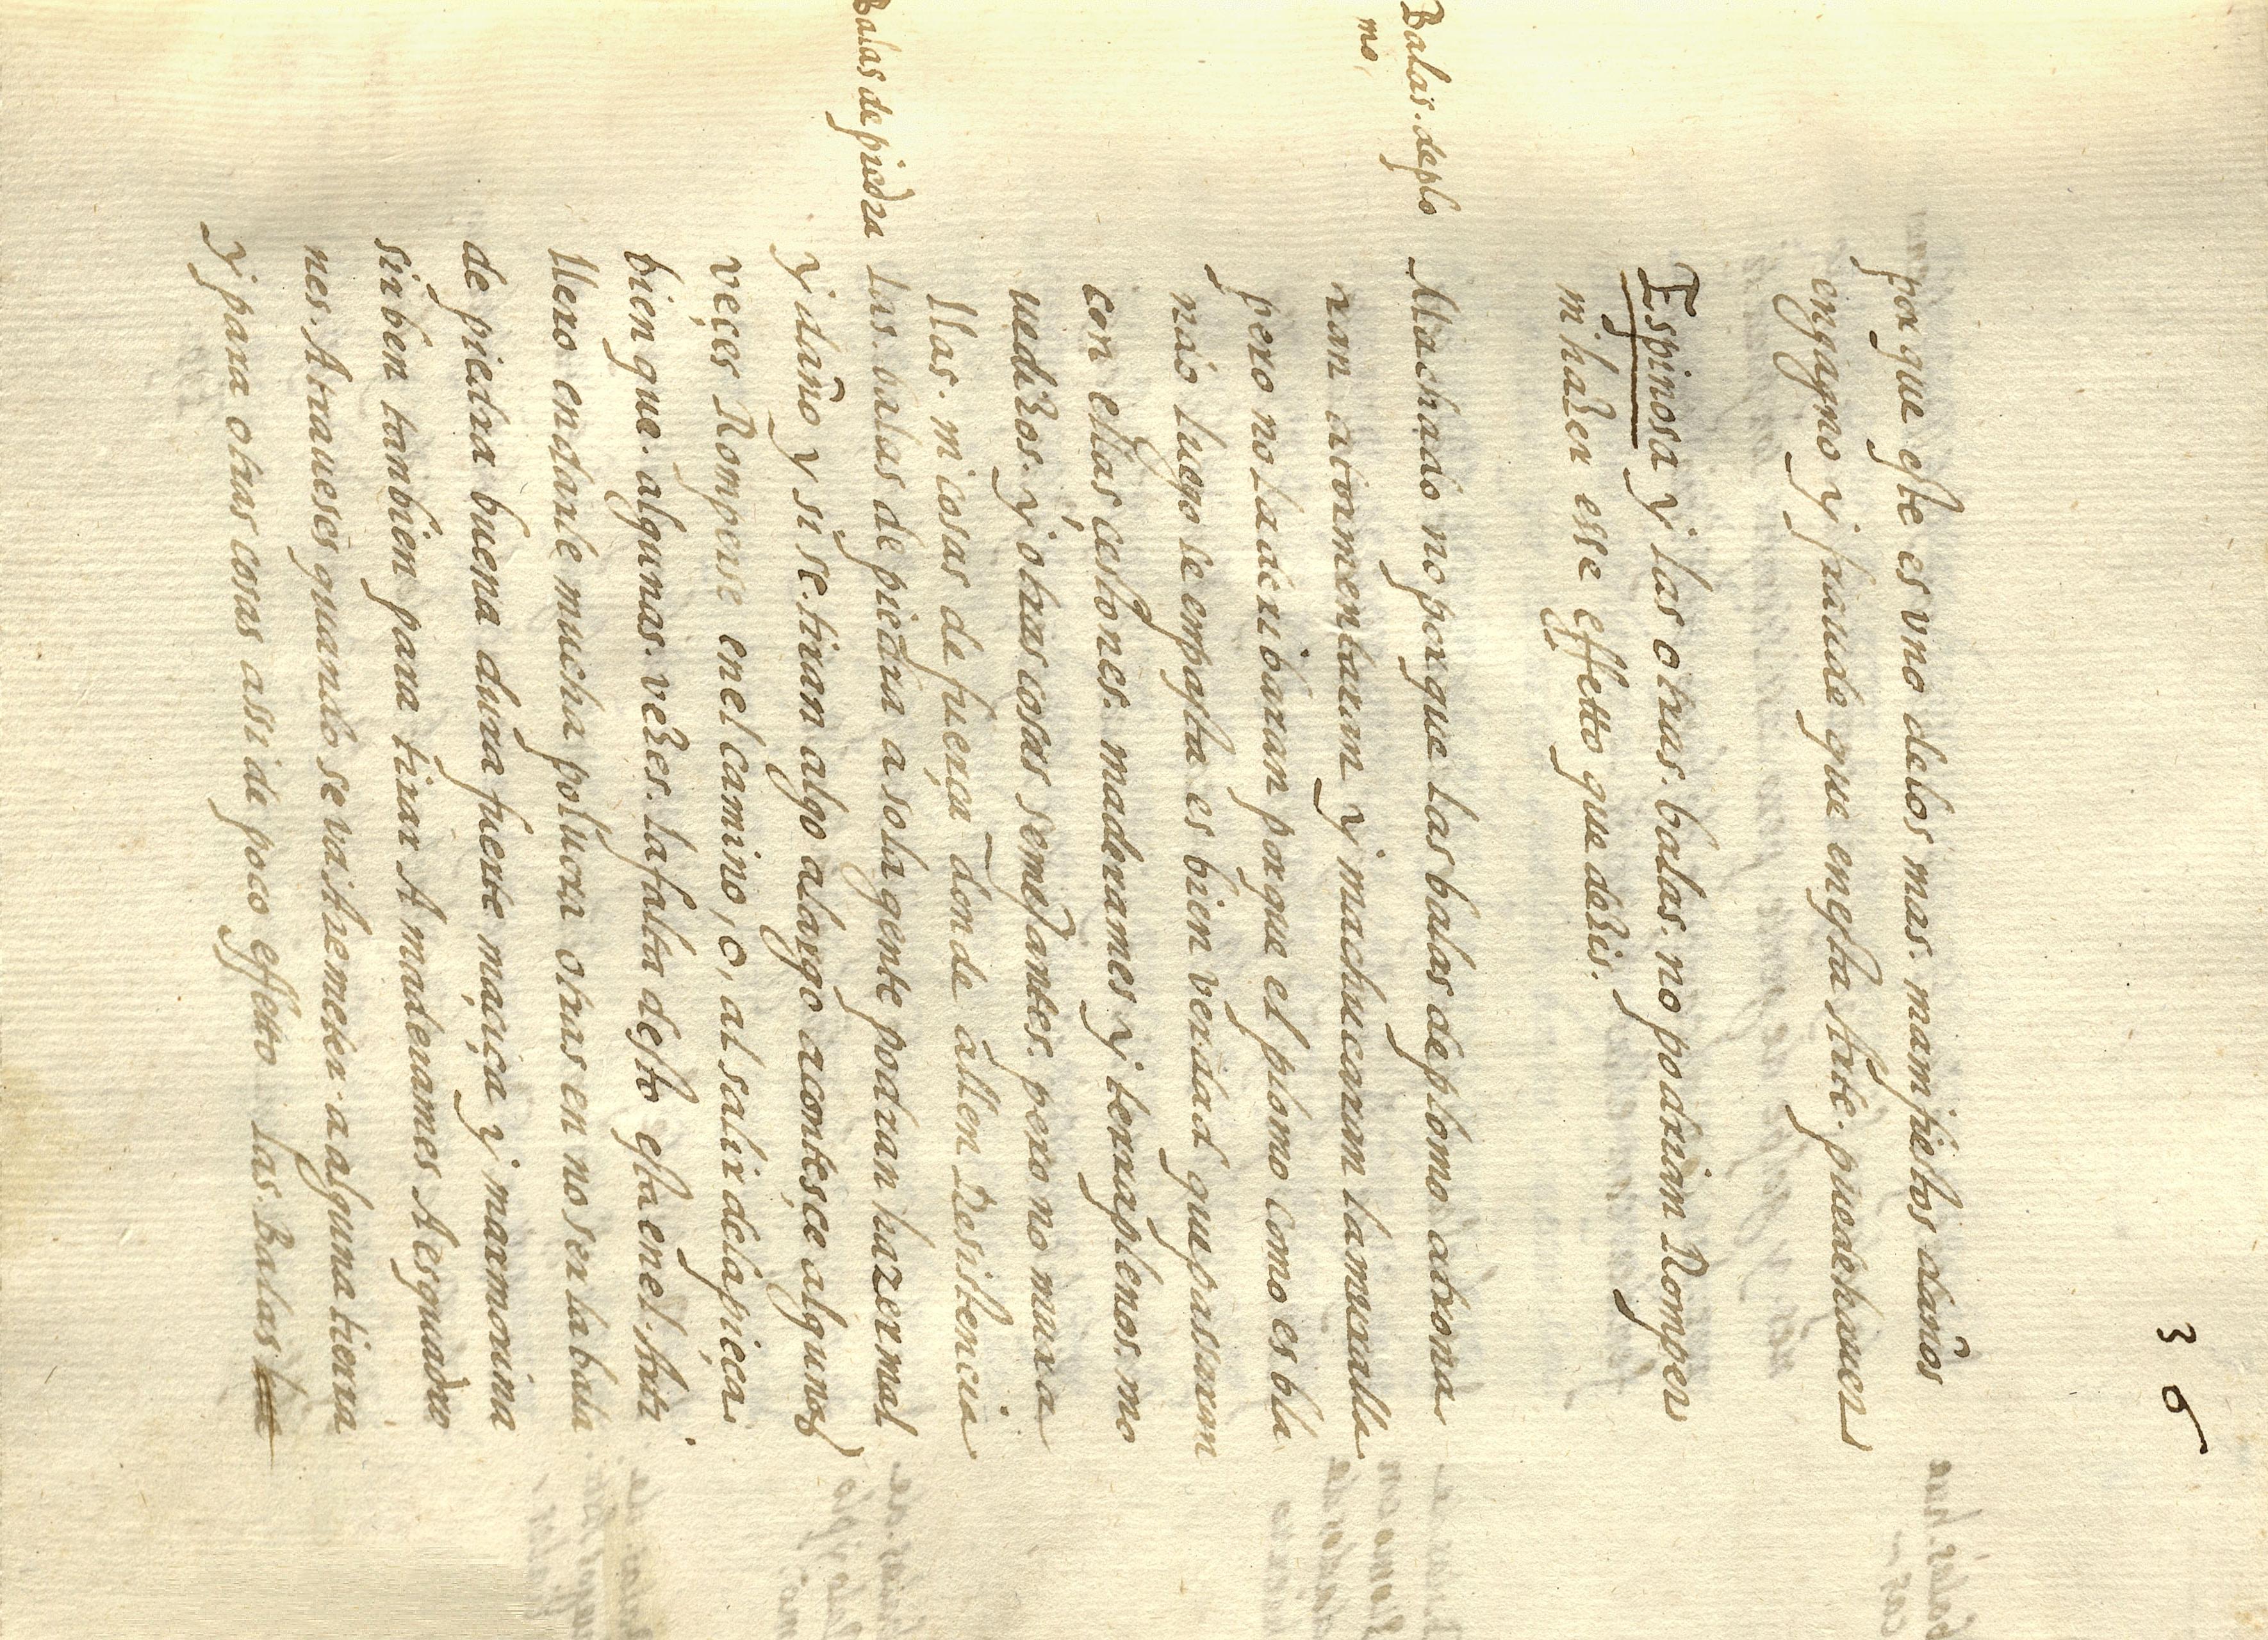 36
por que este es vno delos mas. manifiestos daños
engagno y fraude que en esta Arte. puede hauer
Espinosa y las otras. balas. no podrian Romper
ni hazer esse effetto que dezis.
Balas. de plo
mo
Machado no por que las balas de plomo atrona
ran atormentaran y machucaran la muralla
pero no la derribaran porque el plomo como es bla
nao luego se emposta es bien verdad que passaran
con ellas çestones. maderames y terraplenos. mo
uedizos. y otras cosas semejantes. pero no mura
llas. ni cosas de fuerça donde allen Resistencia
Balas de piedra
las. balas de piedra a sola gente podran hazer mal
y daño y si se. tiran algo alargo acontesçe algunas
veçes Romperse enel camino, o, al salir dela pieça
bien que. algunas. vezes. la falta desto esta enel. Arti
llero en darle mucha poluora otras en no ser la bala
de piedra buena dura fuerte maçiça y marmorina
sirben tanbien para tirar A maderames A esquadro
nes. A traueses quando se vdi meter. a alguna tierra
y para otras cosas assi de poco effetto las. Balas